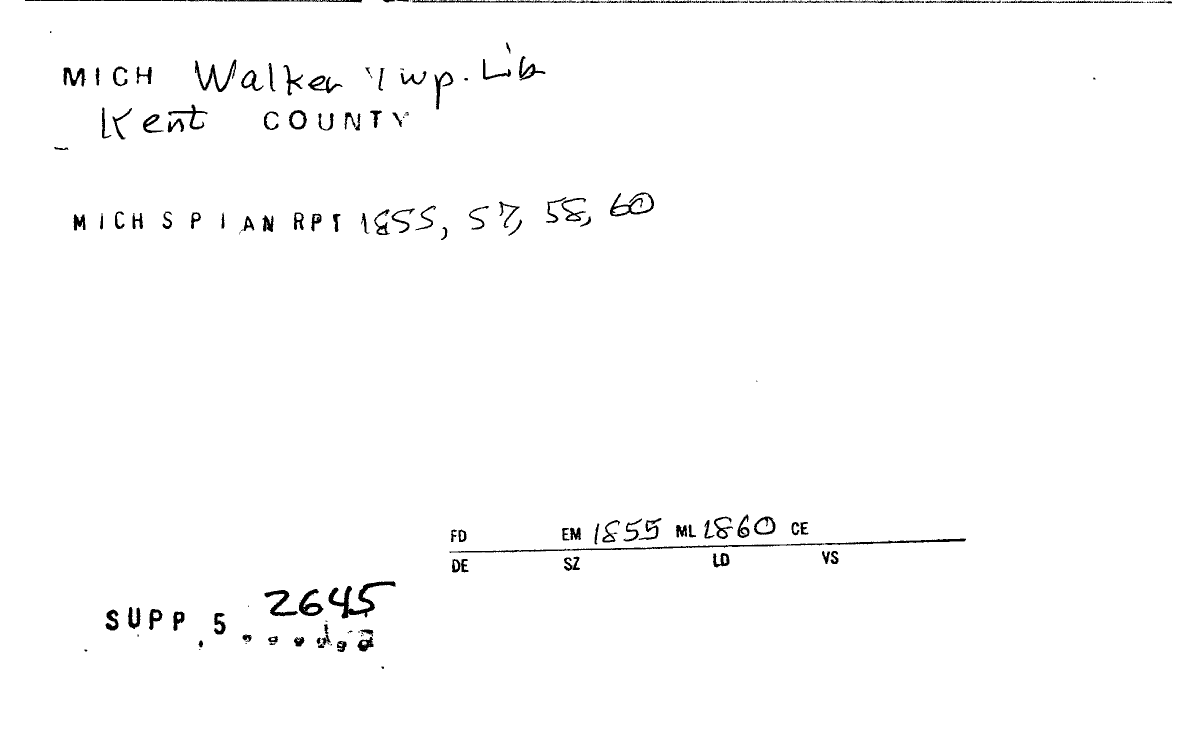 MICH Walker Twp. Lib
Kent COUNTY
MICH S P I AN RPT 1855, 57, 58, 60
FD EM 1855 ML 1860 CE
DE SZ LD VS
SUPP. 5 2645